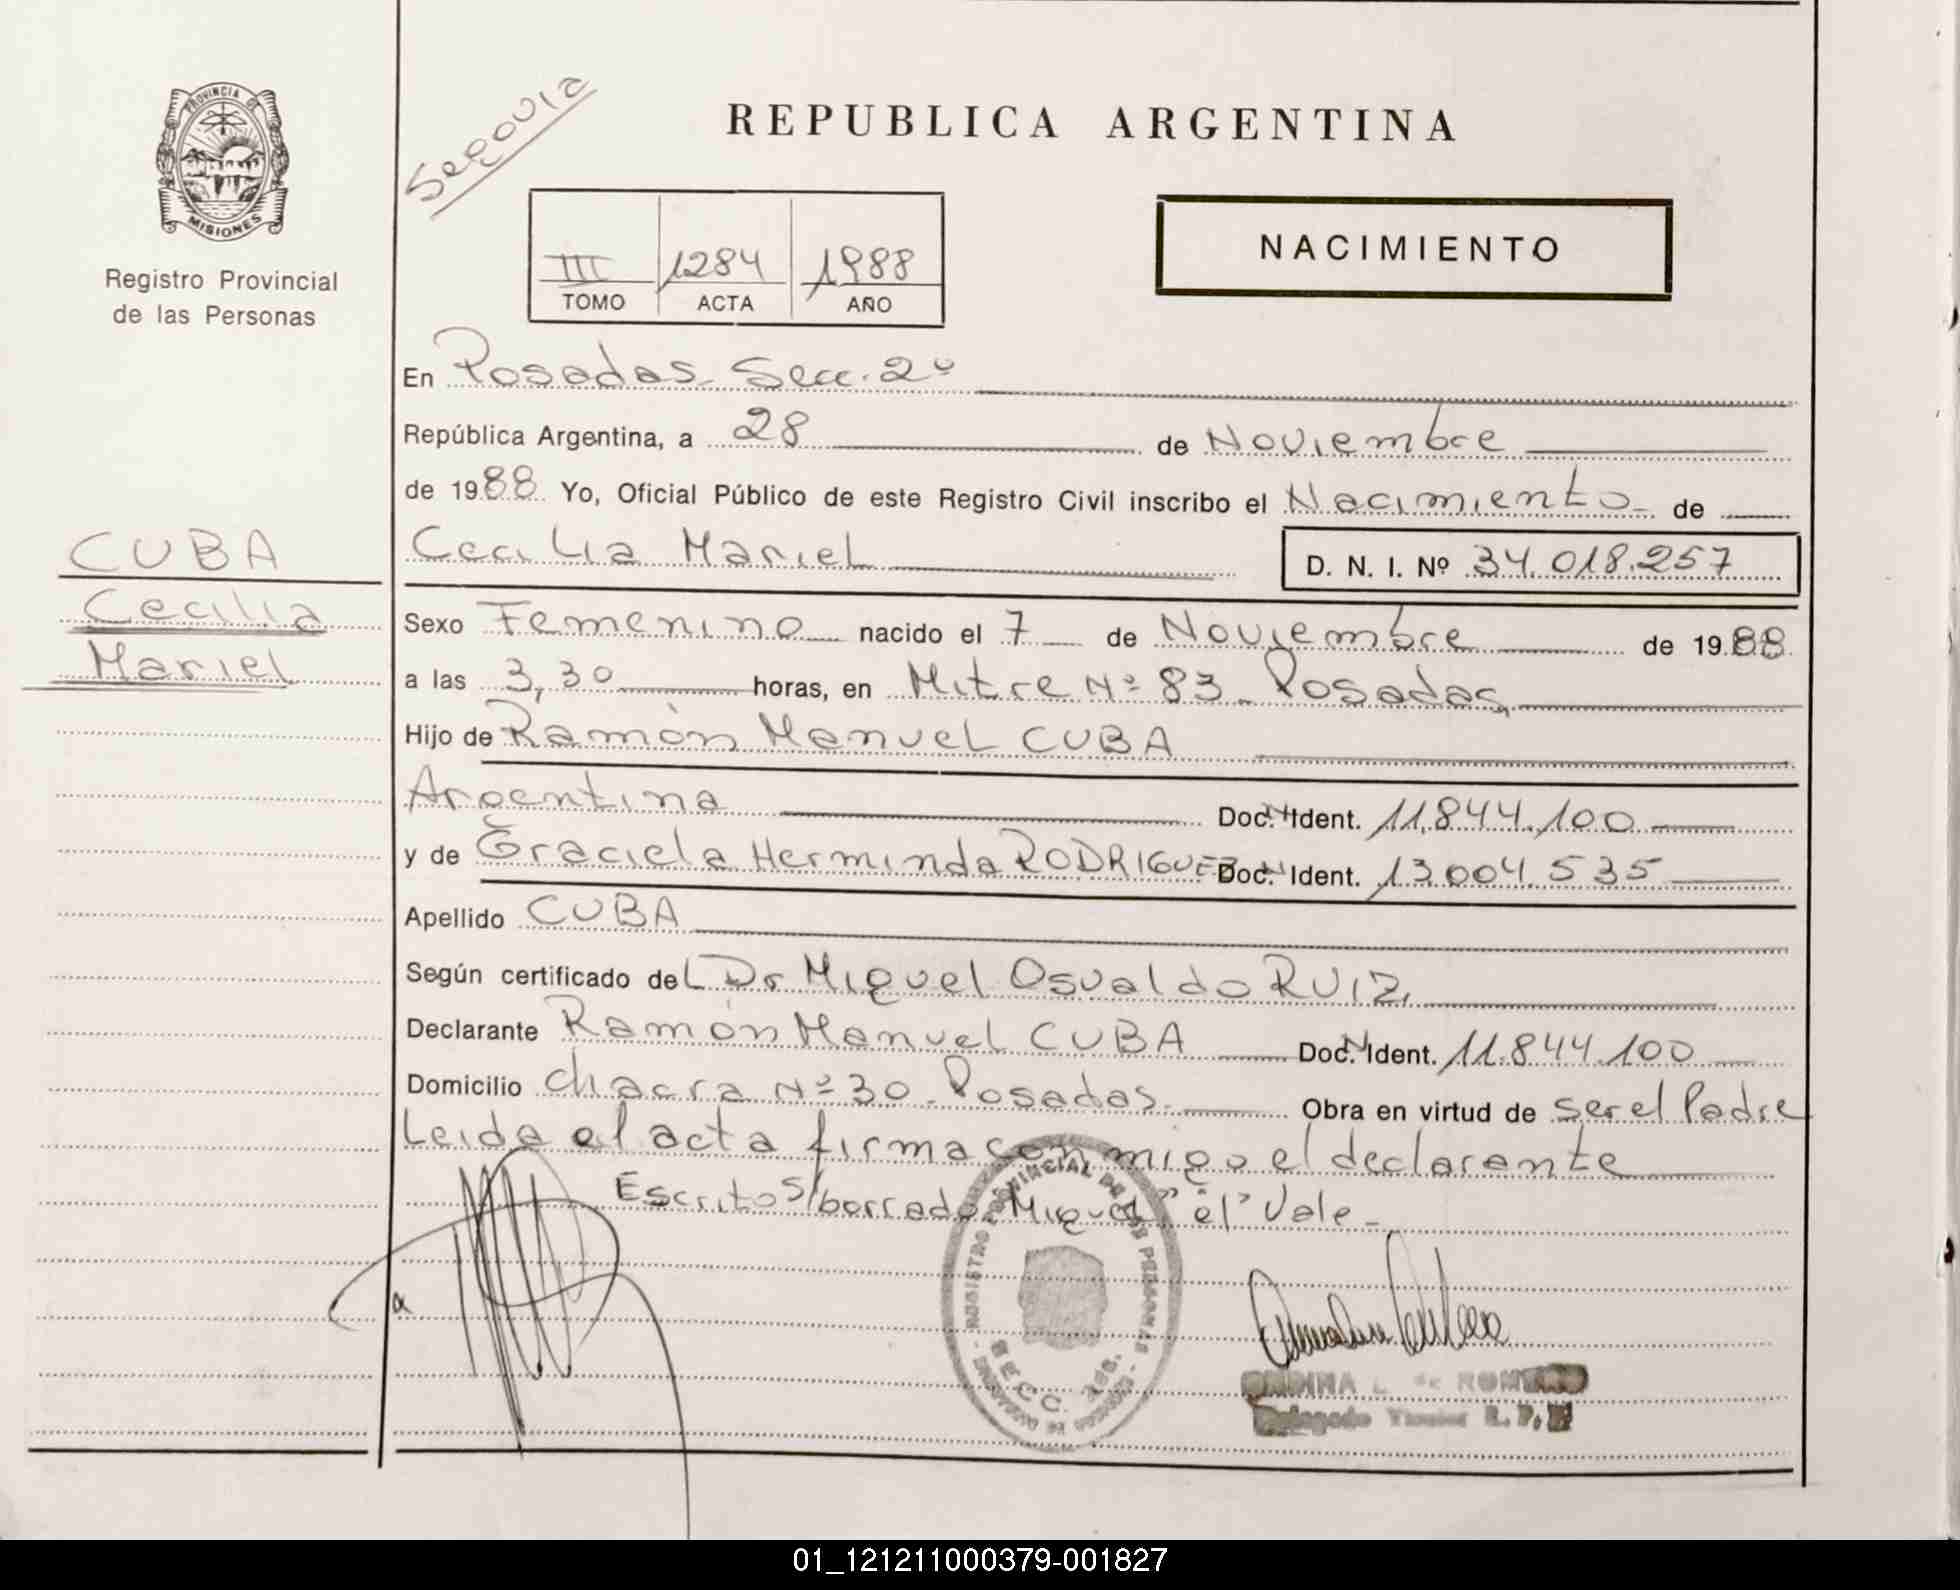 PROVINCIA DE
MISIONES
Registro Provincial
de las Personas
CUBA
Cecilia
Mariel
Segovia
REPUBLICA ARGENTINA
III 1284 1988
TOMO ACTA AÑO
NACIMIENTO
En Posadas Secc. 2º
República Argentina, a 28 de Noviembre
de 1988 Yo, Oficial Público de este Registro Civil inscribo el Nacimiento de
Cecilia Mariel D. N. I. Nº 34.018.257
Sexo Femenino nacido el 7 de Noviembre de 1988
a las 3,30 horas, en Mitre Nº 83 - Posadas
Hijo de Ramón Manuel CUBA
Argentina Doc. Ident. 11.844.100
y de Graciela Herminda RODRIGUEZ Doc. Ident. 13.004.535
Apellido CUBA
Según certificado del Dr Miguel Osvaldo RUIZ
Declarante Ramón Manuel CUBA Doc. Ident. 11.844.100
Domicilio chacra Nº 30 - Posadas - Obra en virtud de ser el Padre
Leida el acta firma conmigo el declarante
Escrito s/borrado "Miguel" "el" Vale -
REGISTRO PROVINCIAL DE LAS PERSONAS
SECC.
DE ROMERO
Delegado R. P. P.
01_121211000379-001827